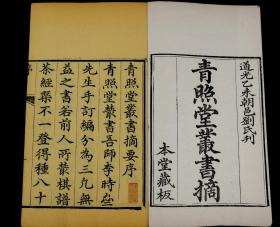 道光乙未朝邑劉氏刊
青照堂叢書摘
本堂藏板
青照堂叢書摘要序
青照堂叢書吾師李時
先生手訂編分為三凡無
益之書若前人所叢棋譜
茶經槩不一登得種八十